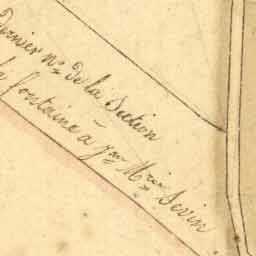 Dernier n.º de la Section
la fontaine à Jn. M.rie Sevin